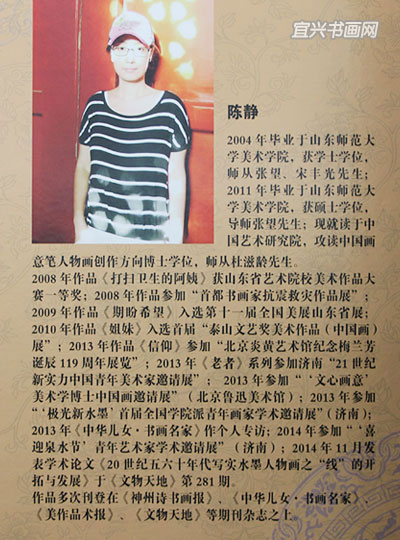 宜兴书画网
陈静
2004 年毕业于山东师范大
学美术学院，获学士学位，
师从张望、宋丰光先生；
2011 年毕业于山东师范大
学美术学院，获硕士学位，
导师张望先生；现就读于中
国艺术研究院，攻读中国画
意笔人物画创作方向博士学位，师从杜滋龄先生。
2008 年作品《打扫卫生的阿姨》获山东省艺术院校美术作品大
赛一等奖；2008 年作品参加“首都书画家抗震救灾作品展”；
2009 年作品《期盼希望》入选第十一届全国美展山东省展；
2010 年作品《姐妹》入选首届“泰山文艺奖美术作品(中国画)
展”；2013 年作品《信仰》参加“北京炎黄艺术馆纪念梅兰芳
诞辰 119 周年展览”；2013 年《老者》系列参加济南“21 世纪
新实力中国青年美术家邀请展”； 2013 年参加“‘文心画意’
美术学博士中国画邀请展”（北京鲁迅美术馆）；2013 年参加
“‘极光新水墨’首届全国学院派青年画家学术邀请展”（济南）；
2013 年《中华儿女·书画名家》作个人专访；2014 年参加“‘喜
迎泉水节’青年艺术家学术邀请展”（济南）；2014 年 11 月发
表学术论文《20 世纪五六十年代写实水墨人物画之“线”的开
拓与发展》于《文物天地》第 281 期。
作品多次刊登在《神州诗书画报》、《中华儿女·书画名家》、
《美作品术报》、《文物天地》等期刊杂志之上。